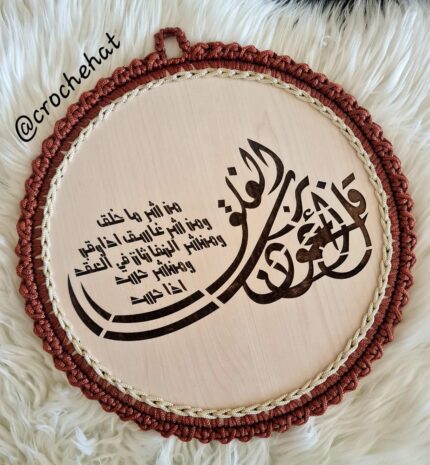 @crochehat
قل أعوذ برب الفلق
من شر ما خلق
ومن شر غاسق اذا وقب
ومن شر النفاثات في العقد
ومن شر حاسد
اذا حسد